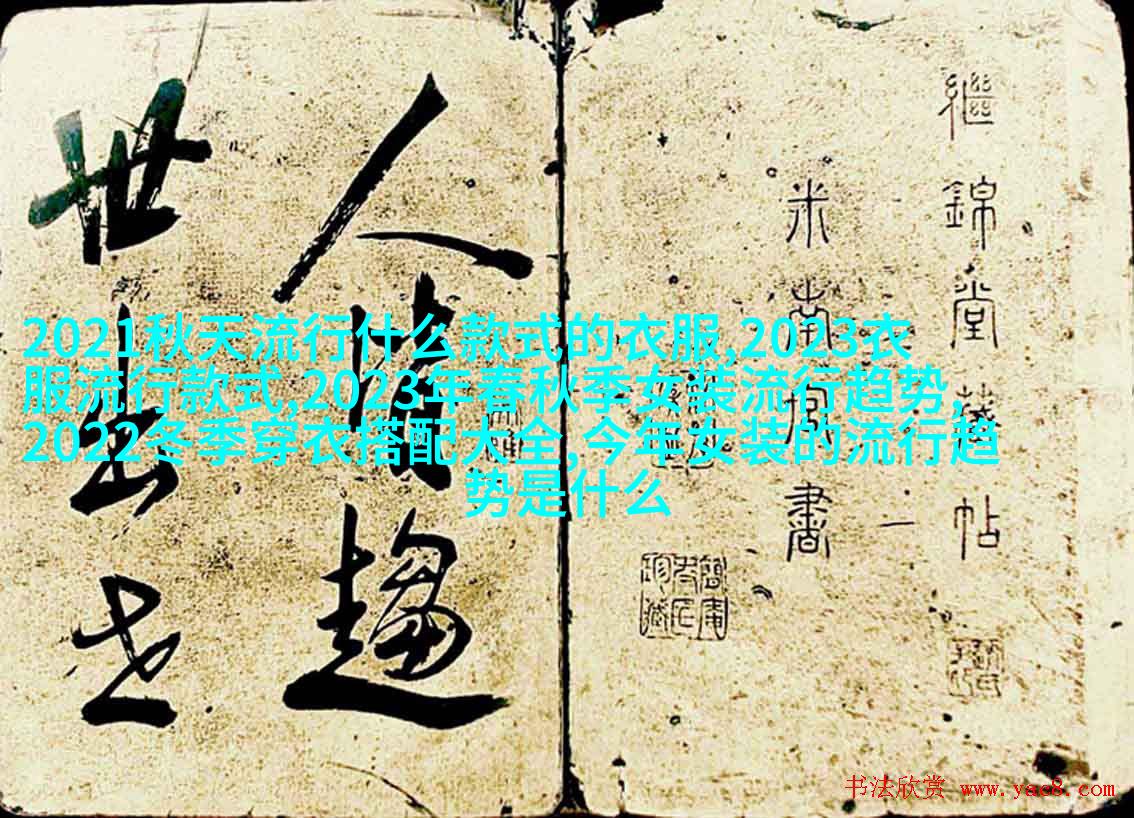 2021秋天流行什么款式的衣服,2023衣
服流行款式,2023年春秋季女装流行趋势,
2022冬季穿衣搭配大全,今年女装的流行趋
势是什么
繼錦堂帖
米南宮書
一
人情趨
世出
书法欣赏 www.yac8.com